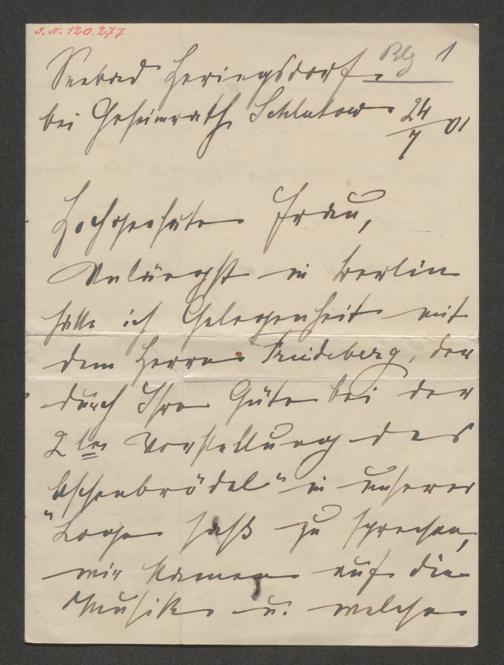 I.N. 120.277
Blg 1
Seebad Heringsdorf.
bei Geheimrath Schlutow 24/7 01
Hochgeehrte Frau,
Unlängst in Berlin
hatte ich Gelegenheit mit
dem Herrn Friedeberg, der
durch Ihre Güte bei der
2ten Vorstellung des
„Aschenbrödel“ in unserer
Loge saß zu sprechen,
wir kamen auf die
Musik u. welche